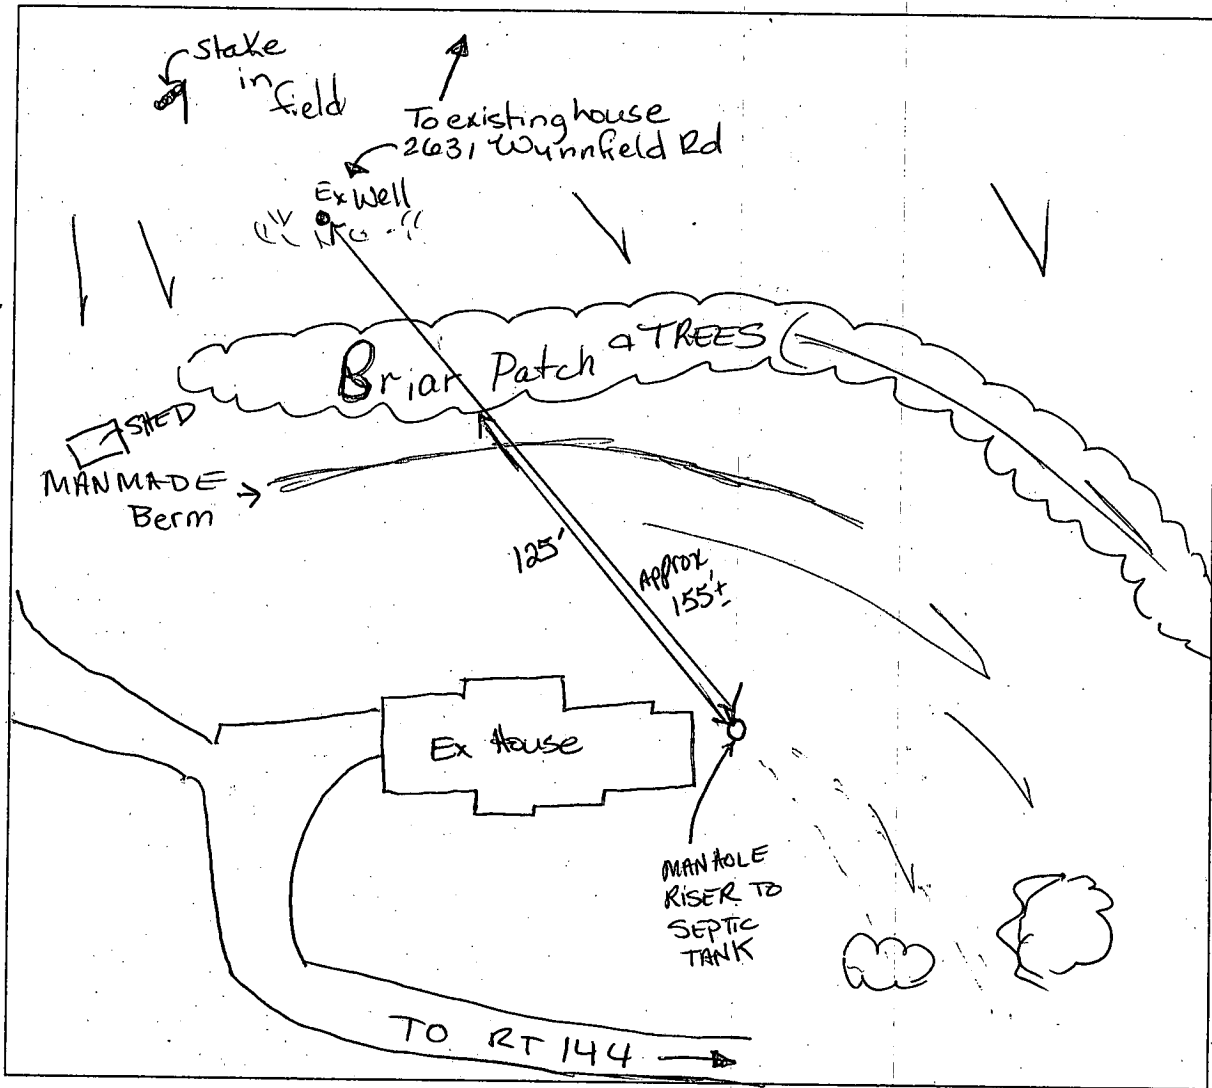 Stake
in
field
To existing house
2631 Wynnfield Rd
Ex Well
Briar Patch & TREES
SHED
MANMADE
Berm
125'
Approx
155'±
Ex House
MANHOLE
RISER TO
SEPTIC
TANK
TO RT 144